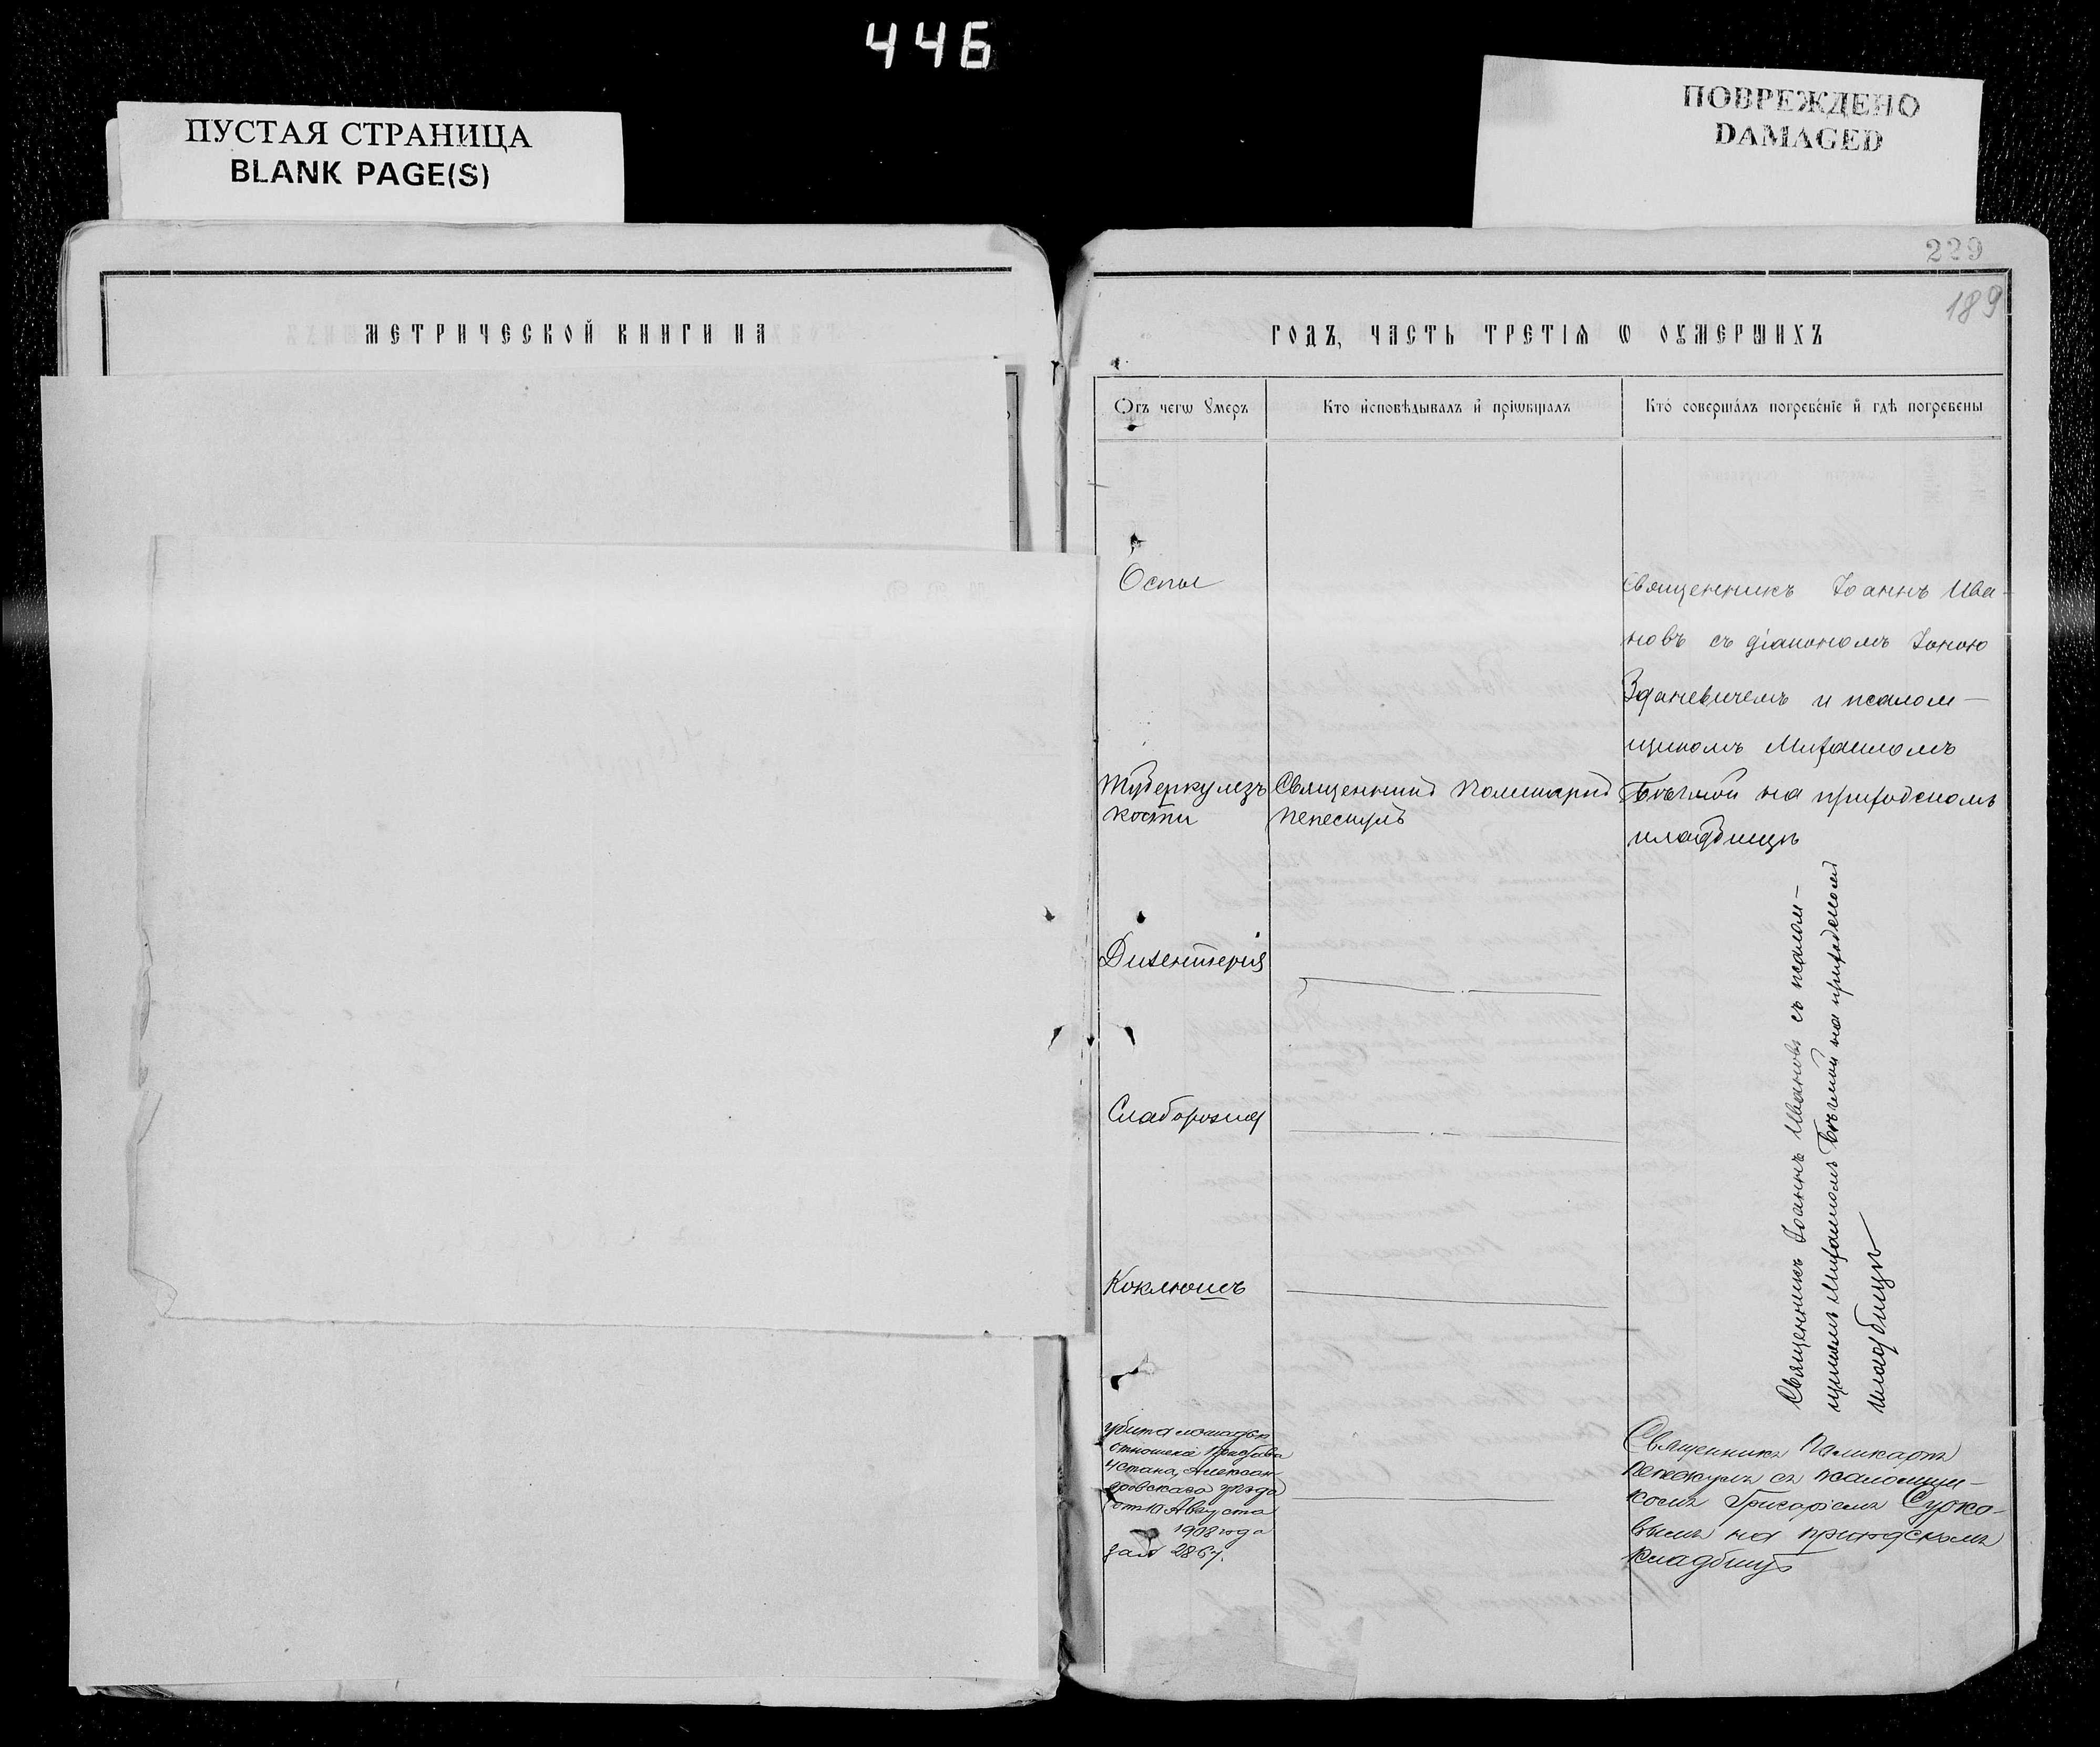 446
ПУСТАЯ СТРАНИЦА
BLANK PAGE(S)
ПОВРЕЖДЕНО
DAMAGED
229
189
МЕТРИЧЕСКОЙ КНИГИ НА
ГОДЪ, ЧАСТЬ ТРЕТІЯ Ѡ ОУМЕРШИХЪ
Ѿ чегѡ Умеръ
Кто исповѣдывалъ и пріѡбщалъ
Кто совершалъ погребеніе и гдѣ погребены
Оспы
Священникъ Іоаннъ Ива-
новъ съ діакономъ Іоною
Зданевичемъ и псалом-
щикомъ Михаиломъ
Бѣгмой на приходскомъ
кладбищѣ
Туберкулезъ
кости
Священникъ Поликарпъ
Пепескулъ
Дизентерія
Священникъ Іоаннъ Ивановъ съ псалом-
щикомъ Михаиломъ Бѣгмой на приходскомъ
кладбищѣ
Слаборозная
Коклюшъ
убита лошадью
отношеніе Пристава
4 стана, Алексан-
дровскаго уѣзда
от 10 Августа
1908 года
за № 2867.
Священникъ Поликарпъ
Пепескулъ съ псаломщи-
комъ Григоріемъ Сурко-
вымъ на приходскомъ
кладбищѣ